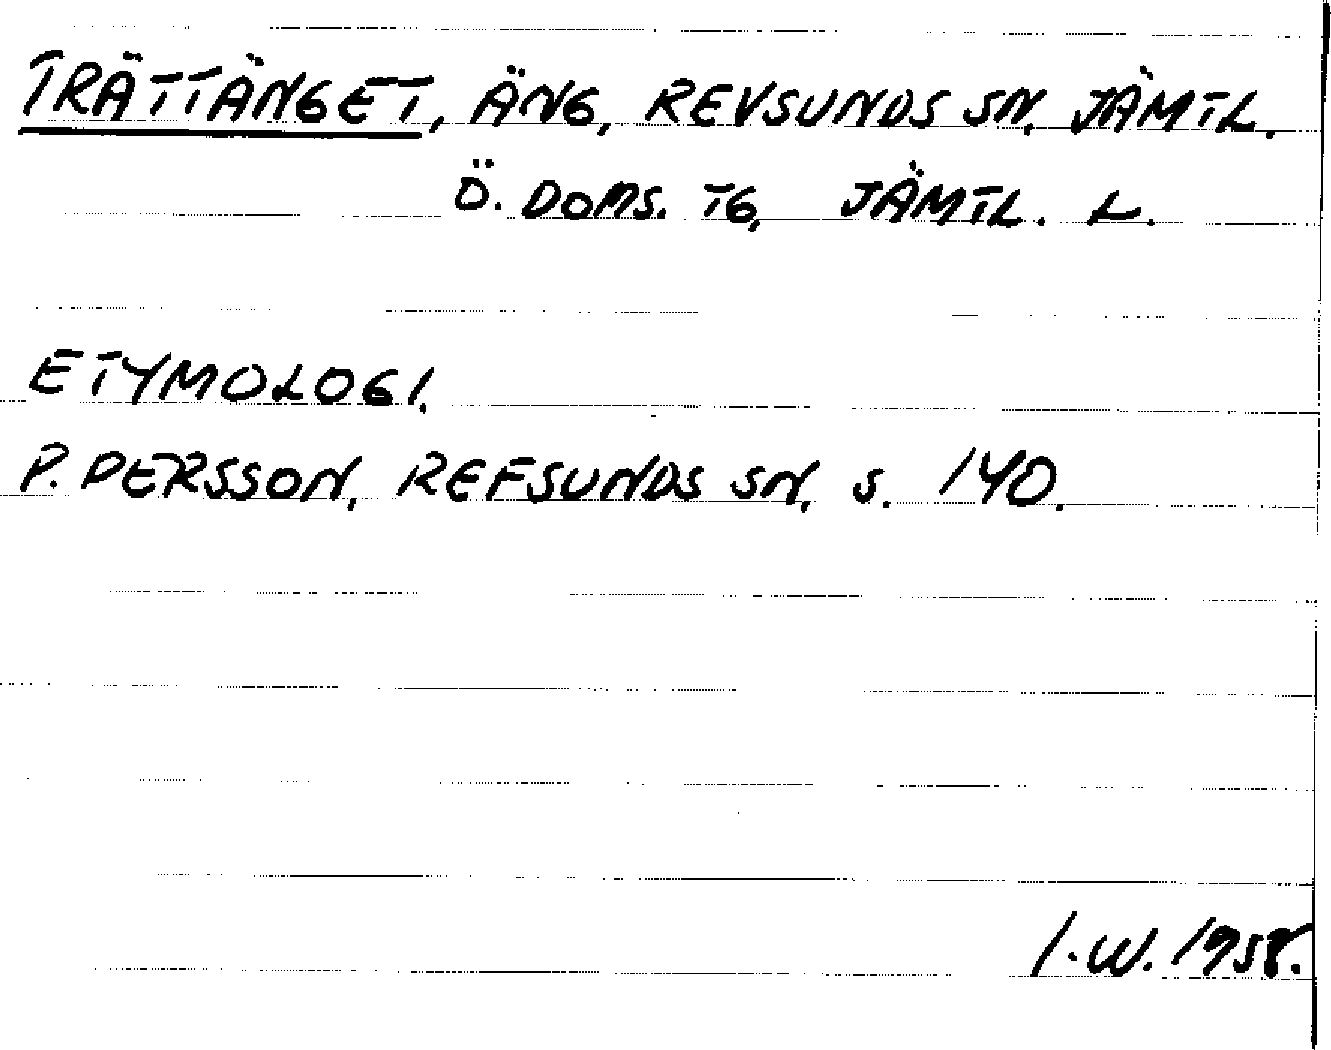 TRÄTTÄNGET, ÄNG, REVSUNDS SN. JÄMTL.
Ö. DOMS. TG, JÄMTL. L.
ETYMOLOGI.
P. PERSSON, REFSUNDS SN, S. 140.
I.W. 1958.